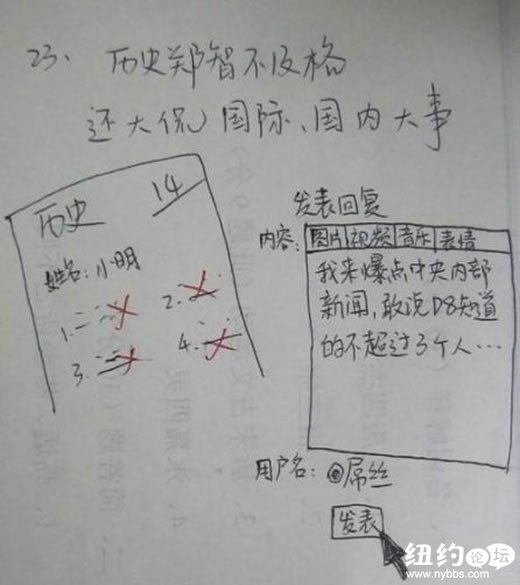 23. 历史郑智不及格
还大侃国际、国内大事
历史 14
姓名:小明
1.
2.
3.
4.
发表回复
内容:
图片 视频 音乐 表情
我来爆点中央内部
新闻,敢说D8知道
的不超过3个人…
用户名:@屌丝
发表
纽约论坛
www.nybbs.com